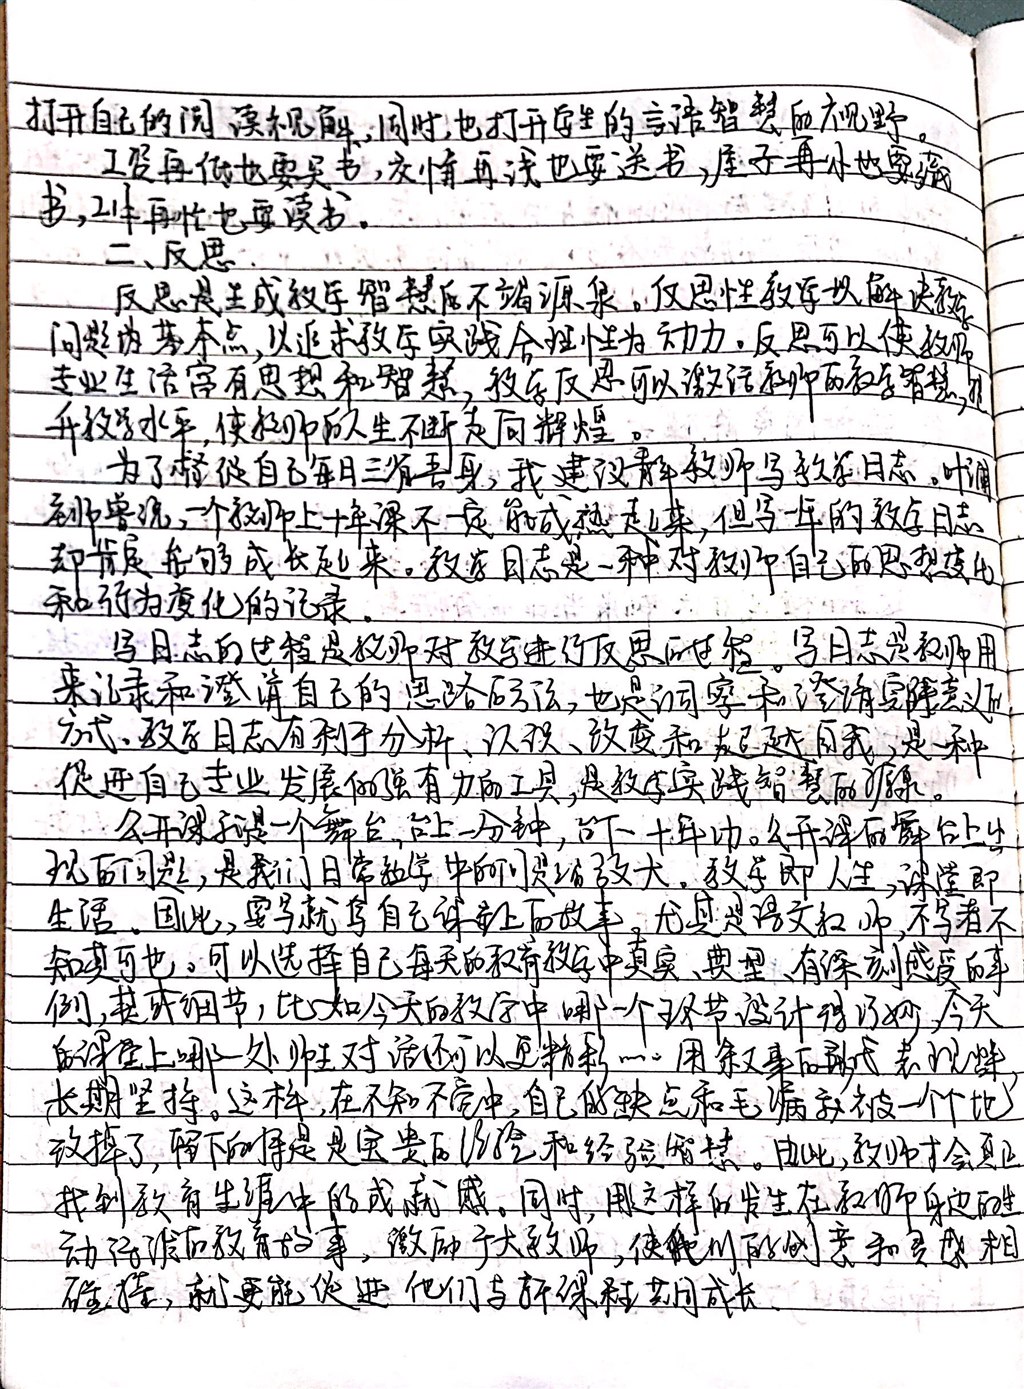 打开自己的阅读视解,同时,也打开学生的言语智慧的视野。
工资再低也要买书,交情再浅也要送书,屋子再小也要藏
书,工作再忙也要读书。
二、反思
反思是生成教学智慧的不竭源泉。反思性教学以解决教学
问题为基本点,以追求教学实践合理性为动力。反思可以使教师
专业生活富有思想和智慧,教学反思可以激活教师的教学智慧,提
升教学水平,使教师的人生不断走向辉煌。
为了督促自己每日三省吾身,我建议新教师写教学日志。叶澜
老师曾说,一个教师上十年课不一定能成熟起来,但写一年的教学日志
却肯定能够成长起来。教学日志是一种对教师自己的思想变化
和行为变化的记录。
写日志的过程是教师对教学进行反思的过程。写日志是教师用
来记录和澄清自己的思路的方法,也是洞察和澄清实践意义的
方式。教学日志有利于分析、认识、改变和超越自我,是一种
促进自己专业发展的强有力的工具,是教学实践智慧的源泉。
公开课就是一个舞台,台上一分钟,台下十年功。公开课的舞台上出
现的问题,是我们日常教学中的问题的放大。教学即人生,课堂即
生活。因此,要写就写自己课堂上的故事。尤其是语文教师,不写者不
知其可也。可以选择自己每天的教育教学中真实、典型、有深刻感受的事
例,甚或细节,比如今天的教学中哪一个环节设计得巧妙,今天
的课堂上哪一处师生对话还可以更精彩……用叙事的形式表现出来,
长期坚持。这样,在不知不觉中,自己的缺点和毛病就被一个个地
改掉了,留下的将是宝贵的经验和经验智慧。由此,教师才会真正
找到教育生涯中的成就感。同时,用这样的发生在教师身边的生
动活泼的教育故事,激励广大教师,使他们的创意和灵感相
碰撞,就更能促进他们与新课程共同成长。